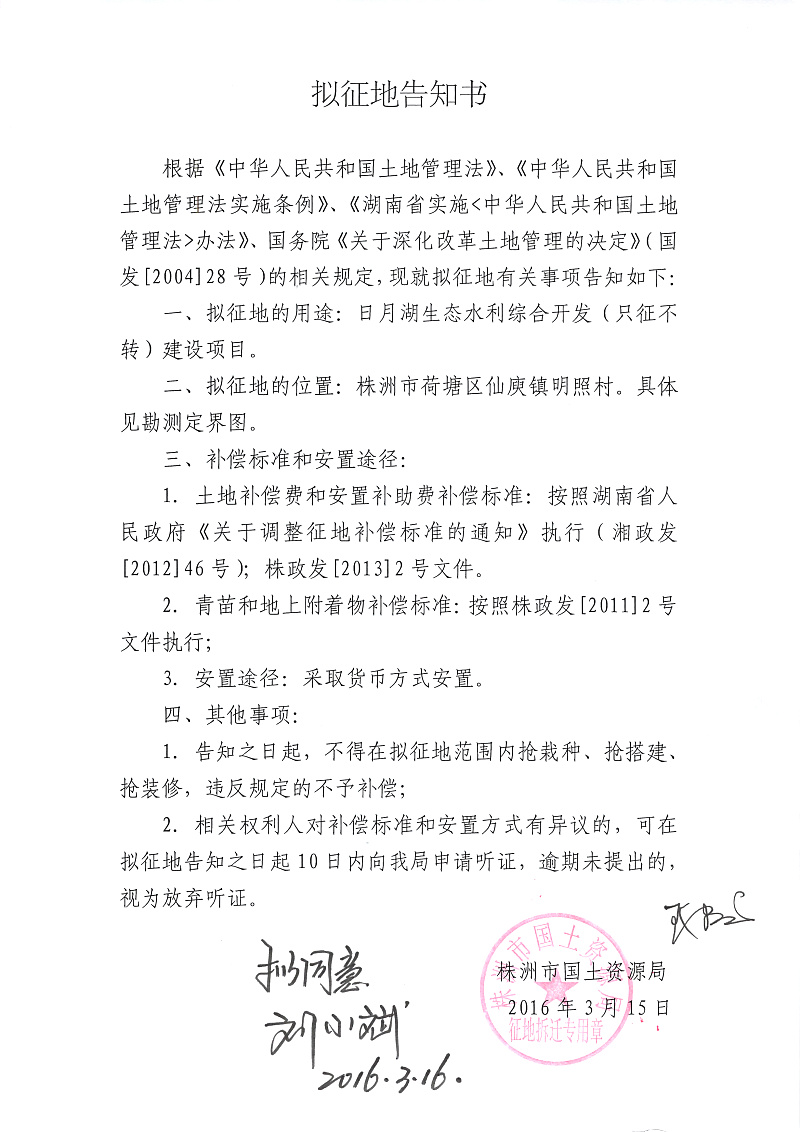 拟征地告知书
根据《中华人民共和国土地管理法》、《中华人民共和国
土地管理法实施条例》、《湖南省实施<中华人民共和国土地
管理法>办法》、国务院《关于深化改革土地管理的决定》(国
发[2004]28 号)的相关规定,现就拟征地有关事项告知如下:
一、拟征地的用途:日月湖生态水利综合开发(只征不
转)建设项目。
二、拟征地的位置:株洲市荷塘区仙庾镇明照村。具体
见勘测定界图。
三、补偿标准和安置途径:
1. 土地补偿费和安置补助费补偿标准:按照湖南省人
民政府《关于调整征地补偿标准的通知》执行(湘政发
[2012]46 号);株政发[2013]2 号文件。
2. 青苗和地上附着物补偿标准:按照株政发[2011]2 号
文件执行;
3. 安置途径:采取货币方式安置。
四、其他事项:
1. 告知之日起,不得在拟征地范围内抢栽种、抢搭建、
抢装修,违反规定的不予补偿;
2. 相关权利人对补偿标准和安置方式有异议的,可在
拟征地告知之日起 10 日内向我局申请听证,逾期未提出的,
视为放弃听证。
株洲市国土资源局
2016 年 3 月 15 日
株洲市国土资源局
征地拆迁专用章
拟同意
刘小斌
2016.3.16.